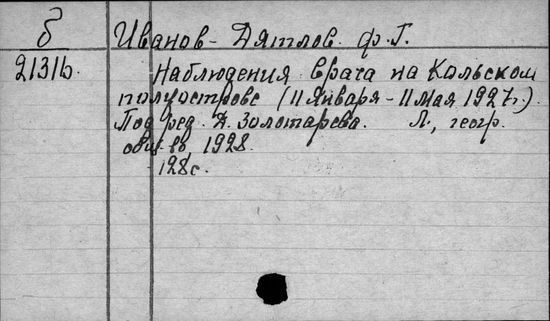 б Иванов-Дятлов. Ф.Г.
2131б. Наблюдения врача на Кольском
полуострове (11 Января - 11 Мая 1927г.).
Под ред. Д. Золотарева. Л., геогр.
общ-во 1928.
128с.